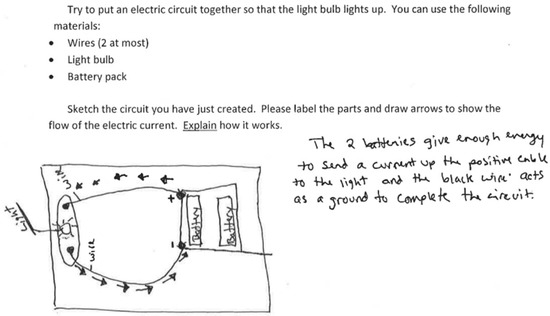 Try to put an electric circuit together so that the light bulb lights up. You can use the following
materials:
• Wires (2 at most)
• Light bulb
• Battery pack
Sketch the circuit you have just created. Please label the parts and draw arrows to show the
flow of the electric current. Explain how it works.
The 2 batteries give enough energy
to send a current up the positive cable
to the light and the black wire acts
as a ground to complete the circuit.
wire
+
Light
Battery
Battery
-
- wire